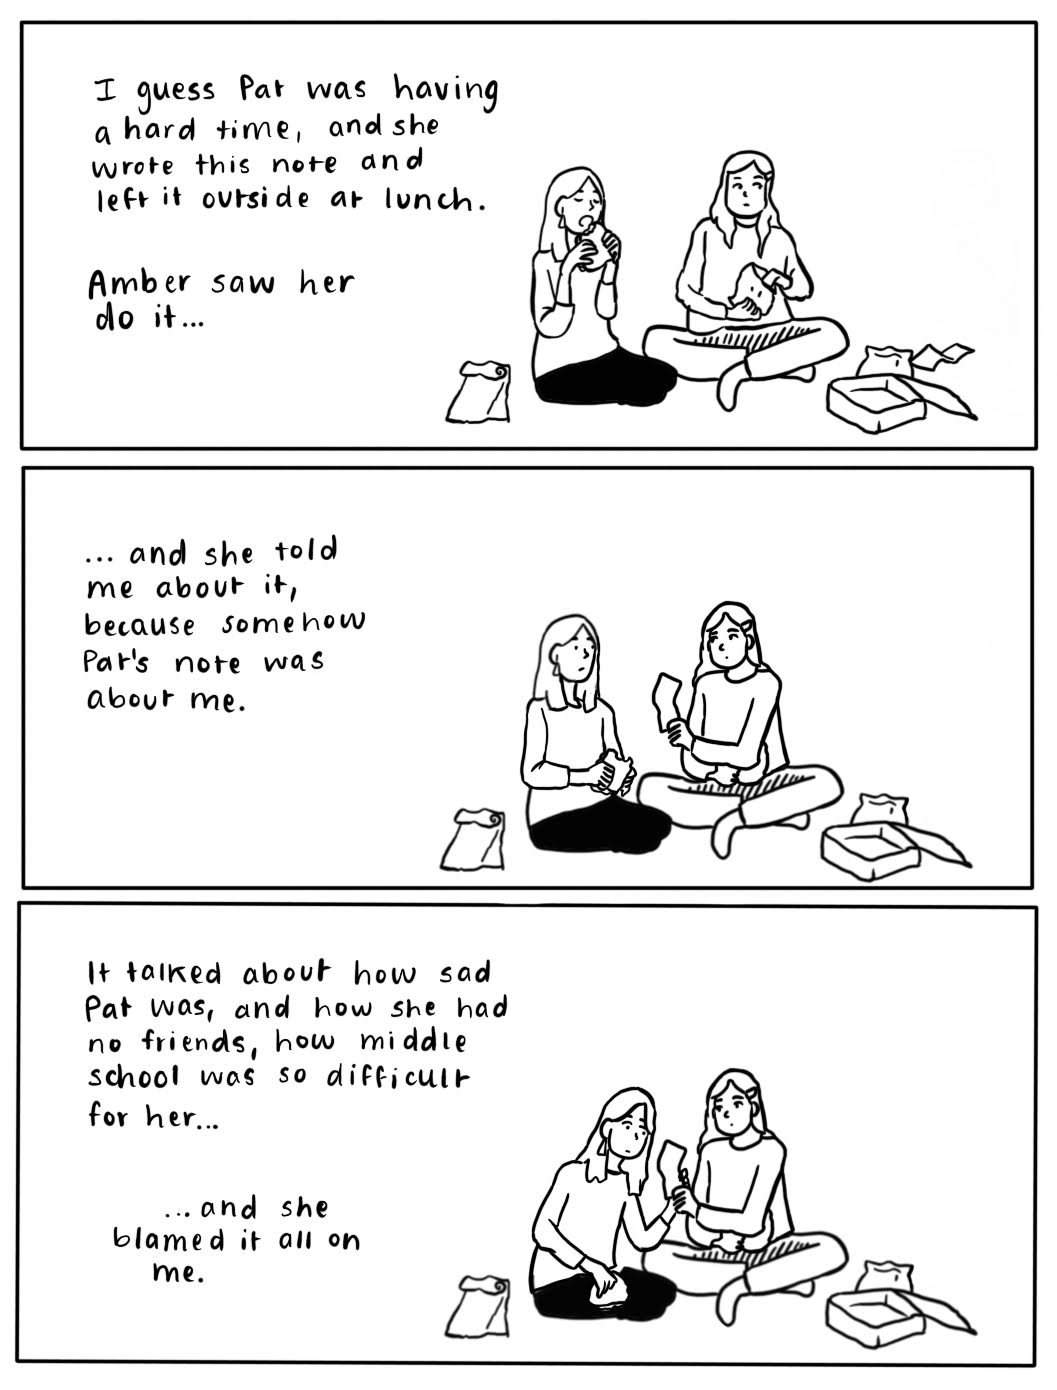 I guess Pat was having
a hard time, and she
wrote this note and
left it outside at lunch.
Amber saw her
do it...
... and she told
me about it,
because somehow
Pat's note was
about me.
It talked about how sad
Pat was, and how she had
no friends, how middle
school was so difficult
for her...
...and she
blamed it all on
me.